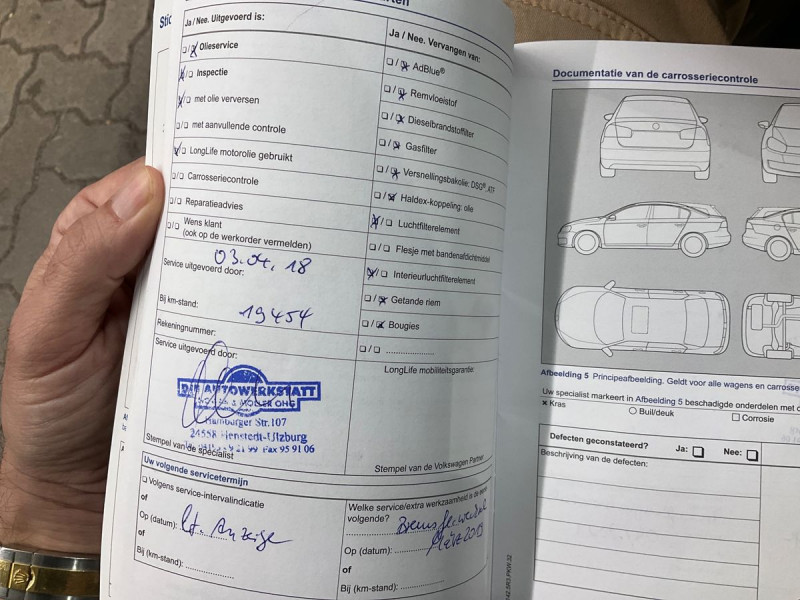 Ja / Nee. Uitgevoerd is:
Olieservice
Inspectie
met olie verversen
met aanvullende controle
LongLife motorolie gebruikt
Carrosseriecontrole
Reparatieadvies
Wens klant
(ook op de werkorder vermelden)
03.04.18
Service uitgevoerd door:
Bij km-stand:
19454
Rekeningnummer:
Service uitgevoerd door:
DIE AUTOWERKSTATT
MÖLLER OHG
Hamburger Str.107
24558 Henstedt-Ulzburg
Fax 95 91 06
Stempel van de specialist
Uw volgende servicetermijn
Volgens service-intervalindicatie
of
Op (datum): lt. Anzeige
of
Bij (km-stand):
Ja / Nee. Vervangen van:
AdBlue®
Remvloeistof
Dieselbrandstoffilter
Gasfilter
Versnellingsbakolie: DSG®, ATF
Haldex-koppeling: olie
Luchtfilterelement
Flesje met bandenafdichtmiddel
Interieurluchtfilterelement
Getande riem
Bougies
LongLife mobiliteitsgarantie:
Stempel van de Volkswagen Partner
Welke service/extra werkzaamheid is de eerst
volgende?
Op (datum):
of
Bij (km-stand):
Documentatie van de carrosseriecontrole
Afbeelding 5 Principeafbeelding. Geldt voor alle wagens en carrosse
Uw specialist markeert in Afbeelding 5 beschadigde onderdelen met
× Kras
Buil/deuk
Corrosie
Defecten geconstateerd?
Ja:
Nee:
Beschrijving van de defecten: